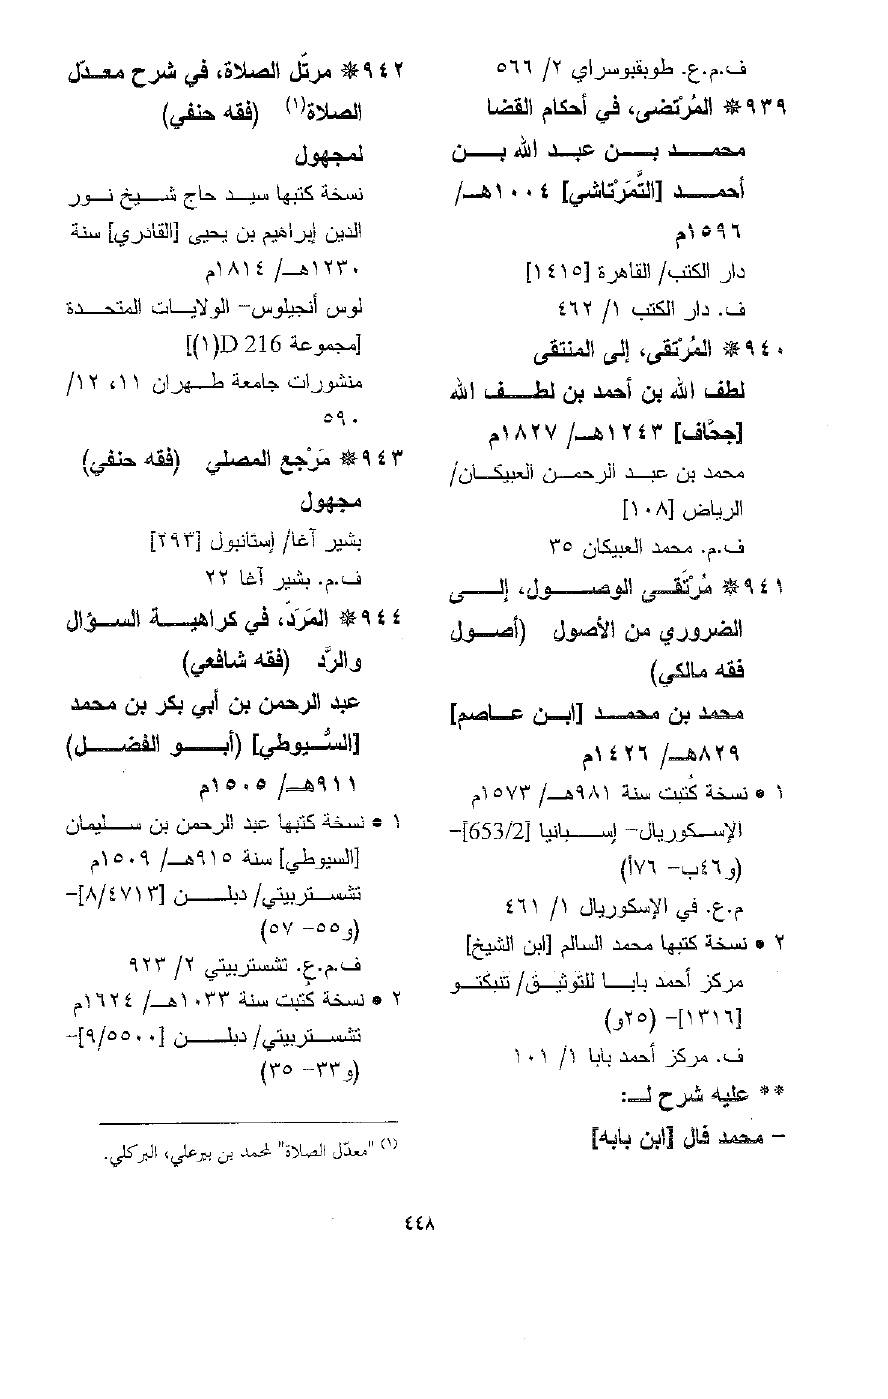 ف.م.ع. طوبقبوسراي ٢/ ٥٦٦
٩٣٩* المُرْتضى، في أحكام القضا
محمـــد بـــن عبـــد الله بـــن
أحمـــد [التُّمَرْتاشي] ١٠٠٤هـــ/
١٥٩٦م
دار الكتب/ القاهرة [١٤١٥]
ف. دار الكتب ١/ ٤٦٢
٩٤٠* المُرْتقى، إلى المنتقى
لطف الله بن أحمد بن لطـــف الله
[جحَّاف] ١٢٤٣هـــ/ ١٨٢٧م
محمد بن عبـــد الرحمـــن العبيكـــان/
الرياض [١٠٨]
ف.م. محمد العبيكان ٣٥
٩٤١* مُرتَقَـــى الوصـــول، إلـــى
الضروري من الأصول (أصـــول
فقه مالكي)
محمد بن محمـــد [ابـــن عـــاصم]
٨٢٩هـــ/ ١٤٢٦م
١ • نسخة كُتبت سنة ٩٨١هـــ/ ١٥٧٣م
الإســـكوريال- إســـبانيا [653/2]-
(و٤٦ب- ٧٦أ)
م.ع. في الإسكوريال ١/ ٤٦١
٢ • نسخة كتبها محمد السالم [ابن الشيخ]
مركز أحمد بابـــا للتوثيـــق/ تنبكتـــو
[١٣١٦]- (٢٥و)
ف. مركز أحمد بابا ١/ ١٠١
** عليه شرح لـــ:
- محمد فال [ابن بابه]
٩٤٢* مرتّل الصلاة، في شرح معـــدّل
الصلاة(١) (فقه حنفي)
لمجهول
نسخة كتبها سيـــد حاج شـــيخ نـــور
الدين إبراهيم بن يحيى [القادري] سنة
١٢٣٠هـــ/ ١٨١٤م
لوس أنجيلوس- الولايـــات المتحـــدة
[مجموعة D 216(١)]
منشورات جامعة طـــهران ١١، ١٢/
٥٩٠
٩٤٣* مَرْجع المصلي (فقه حنفي)
مجهول
بشير آغا/ إستانبول [٢٩٣]
ف.م. بشير آغا ٢٢
٩٤٤* المَرَدّ، في كراهيـــة الســـؤال
والرَّد (فقه شافعي)
عبد الرحمن بن أبي بكر بن محمد
[السُّـــيوطي] (أبـــو الفضـــل)
٩١١هـــ/ ١٥٠٥م
١ • نسخة كتبها عبد الرحمن بن ســـليمان
[السيوطي] سنة ٩١٥هـــ/ ١٥٠٩م
تشســـتربيتي/ دبلـــن [٨/٤٧١٣]-
(و٥٥- ٥٧)
ف.م.ع. تشستربيتي ٢/ ٩٢٣
٢ • نسخة كُتبت سنة ١٠٣٣هـــ/ ١٦٢٤م
تشســـتربيتي/ دبلـــن [٩/٥٥٠٠]-
(و٣٣- ٣٥)
(١) "معدّل الصلاة" لمحمد بن بيرعلي، البركلي.
٤٤٨